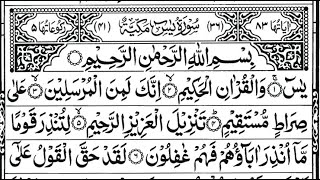 اٰیَاتُهَا ۸۳ (۳۶) سُوْرَةُ يٰسٓ مَكِّيَّةٌ (۴۱) رُكُوْعَاتُهَا ۵
بِسْمِ اللّٰهِ الرَّحْمٰنِ الرَّحِيْمِ
يٰسٓ ۚ‏ ۱ وَالْقُرْاٰنِ الْحَكِيْمِ ۙ‏ ۲ اِنَّكَ لَمِنَ الْمُرْسَلِيْنَ ۙ‏ ۳ عَلٰى
صِرَاطٍ مُّسْتَقِيْمٍ ؕ‏ ۴ تَنْزِيْلَ الْعَزِيْزِ الرَّحِيْمِ ۙ‏ ۵ لِتُنْذِرَ قَوْمًا
مَّاۤ اُنْذِرَ اٰبَآؤُهُمْ فَهُمْ غٰفِلُوْنَ ۶ لَقَدْ حَقَّ الْقَوْلُ عَلٰٓى